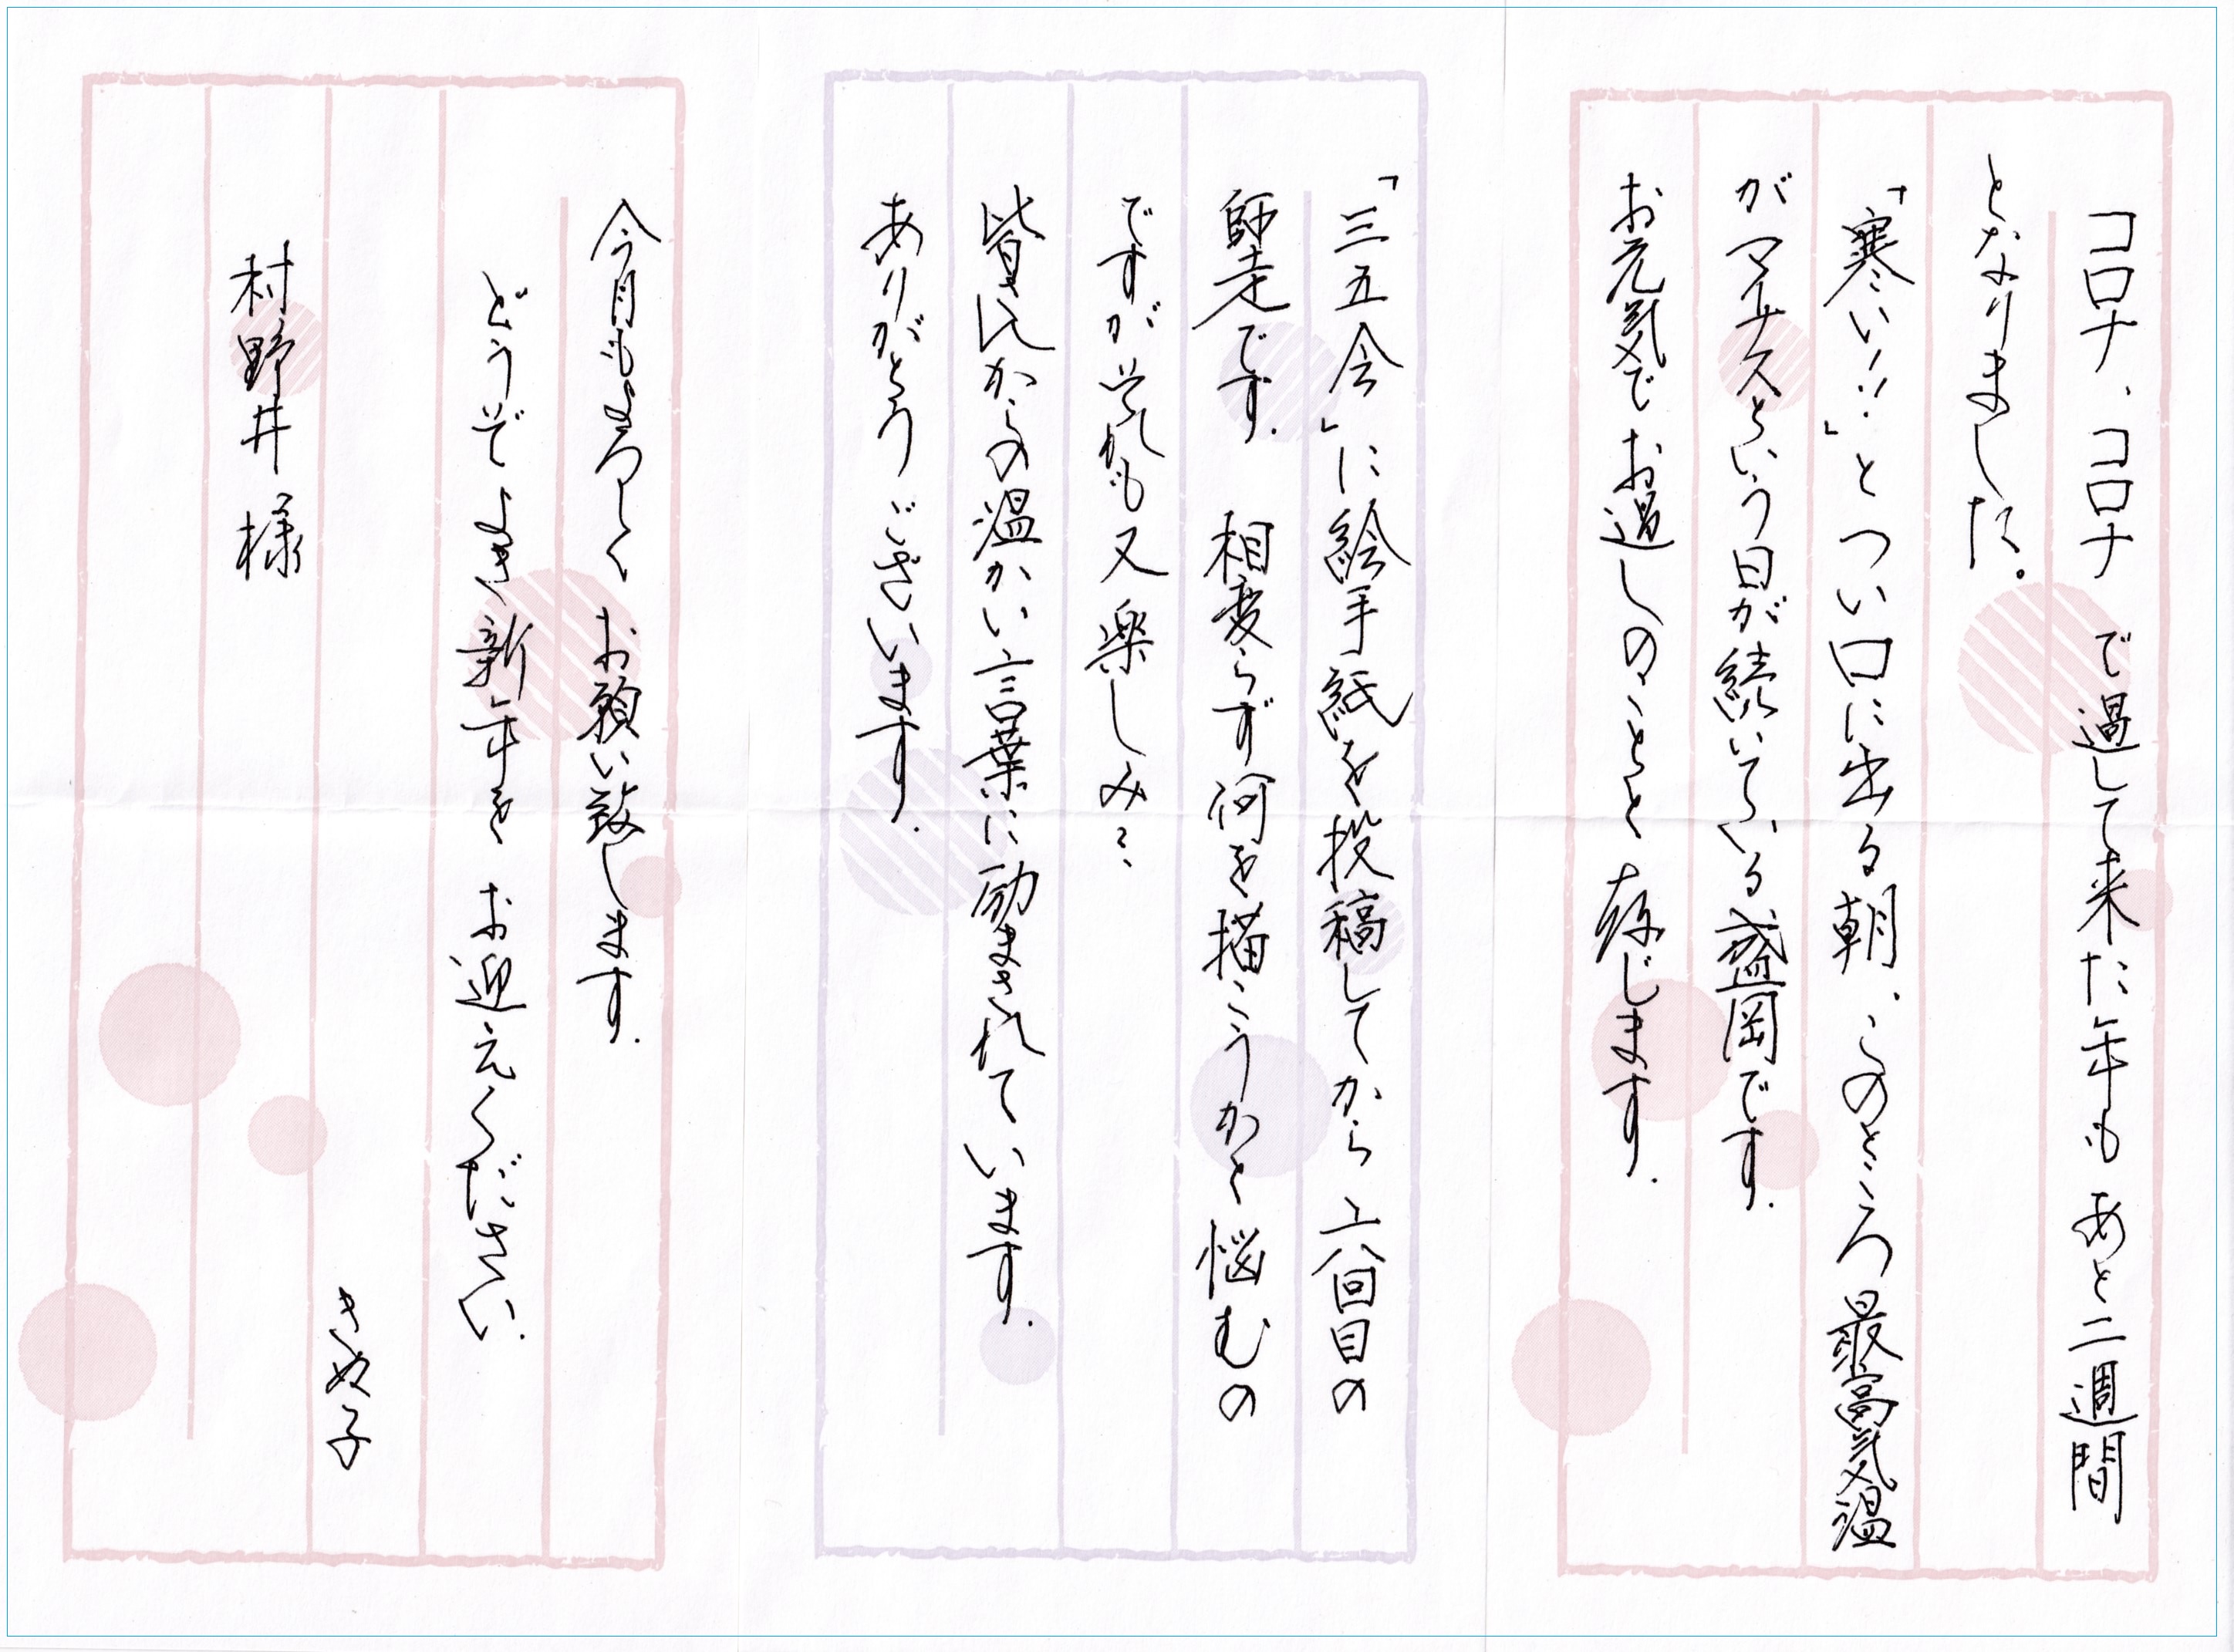 コロナ、コロナ で過して来た年も あと二週間
となりました。
「寒い!!」とつい口に出る朝、このところ最高気温
がマイナスという日が続いている盛岡です.
お元気でお過しのことと存じます.
「三五会」に絵手紙を投稿してから 六回目の
師走です. 相変らず何を描こうかと悩むの
ですが、それも又楽しみ…
皆氏からの温かい言葉に励まされています.
ありがとうございます.
今月もよろしく お願い致します.
どうぞ よき新年を お迎えください.
きぬ子
村野井 様